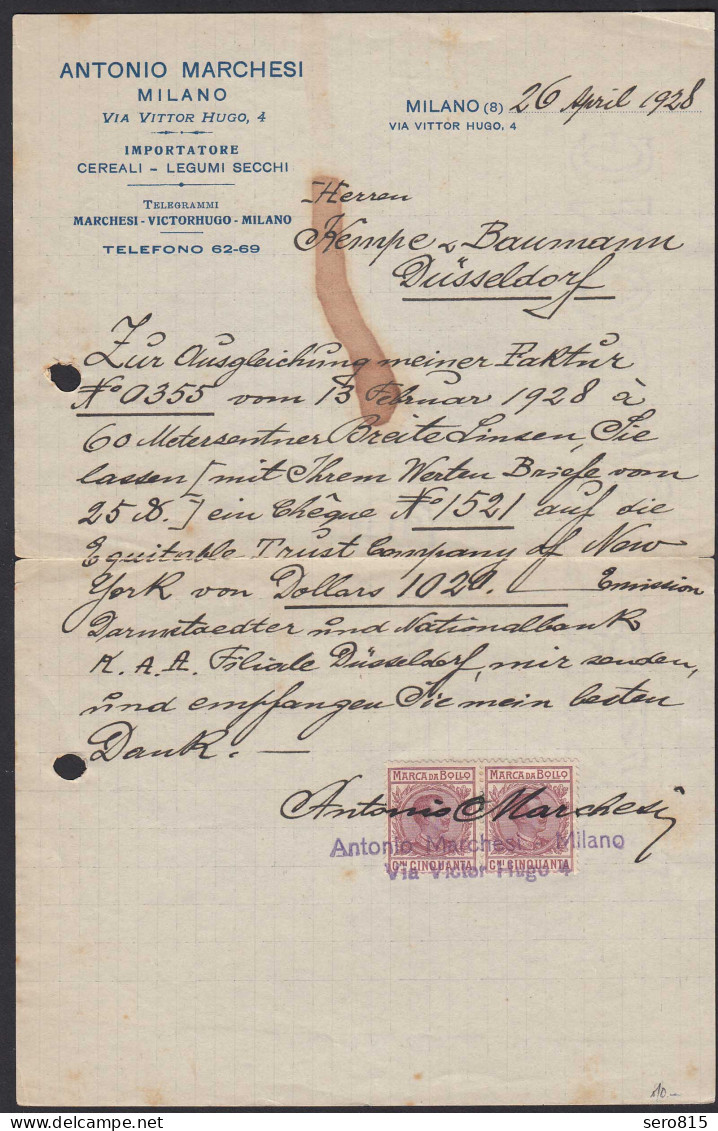 ANTONIO MARCHESI
MILANO
VIA VITTOR HUGO, 4
IMPORTATORE
CEREALI - LEGUMI SECCHI
TELEGRAMMI
MARCHESI - VICTORHUGO - MILANO
TELEFONO 62-69
MILANO (8) 26 April 1928
VIA VITTOR HUGO, 4
Herren
Kempe & Baumann
Düsseldorf
Zur Ausgleichung meiner Faktur
No 0355 vom 13 Februar 1928 à
60 Metersentner Breite Linsen, Sie
lassen [mit Ihrem Werten Briefe vom
25 d.] ein Chêque No 1521 auf die
Equitable Trust Company of New
York von Dollars 1020. — Emission
Darmstaedter und Nationalbank
K. A. A. Filiale Düsseldorf, mir senden,
und empfangen Sie mein besten
Dank. —
MARCA DA BOLLO MARCA DA BOLLO
Antonio Marchesi
Antonio Marchesi - Milano
CMI CINQUANTA CMI CINQUANTA
Via Victor Hugo 4
sero815